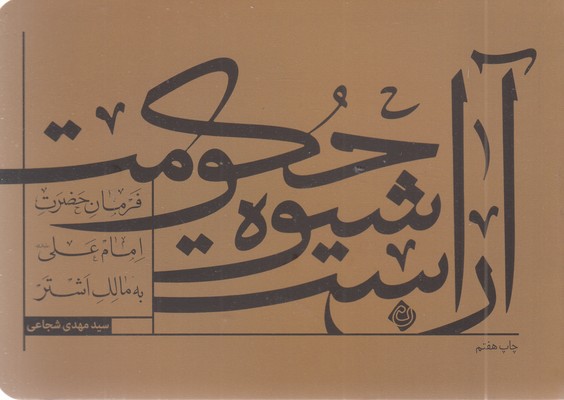 آراست
شیوه
حکومت
فرمان حضرت
امام علی
به مالک اشتر
سید مهدی شجاعی
چاپ هفتم